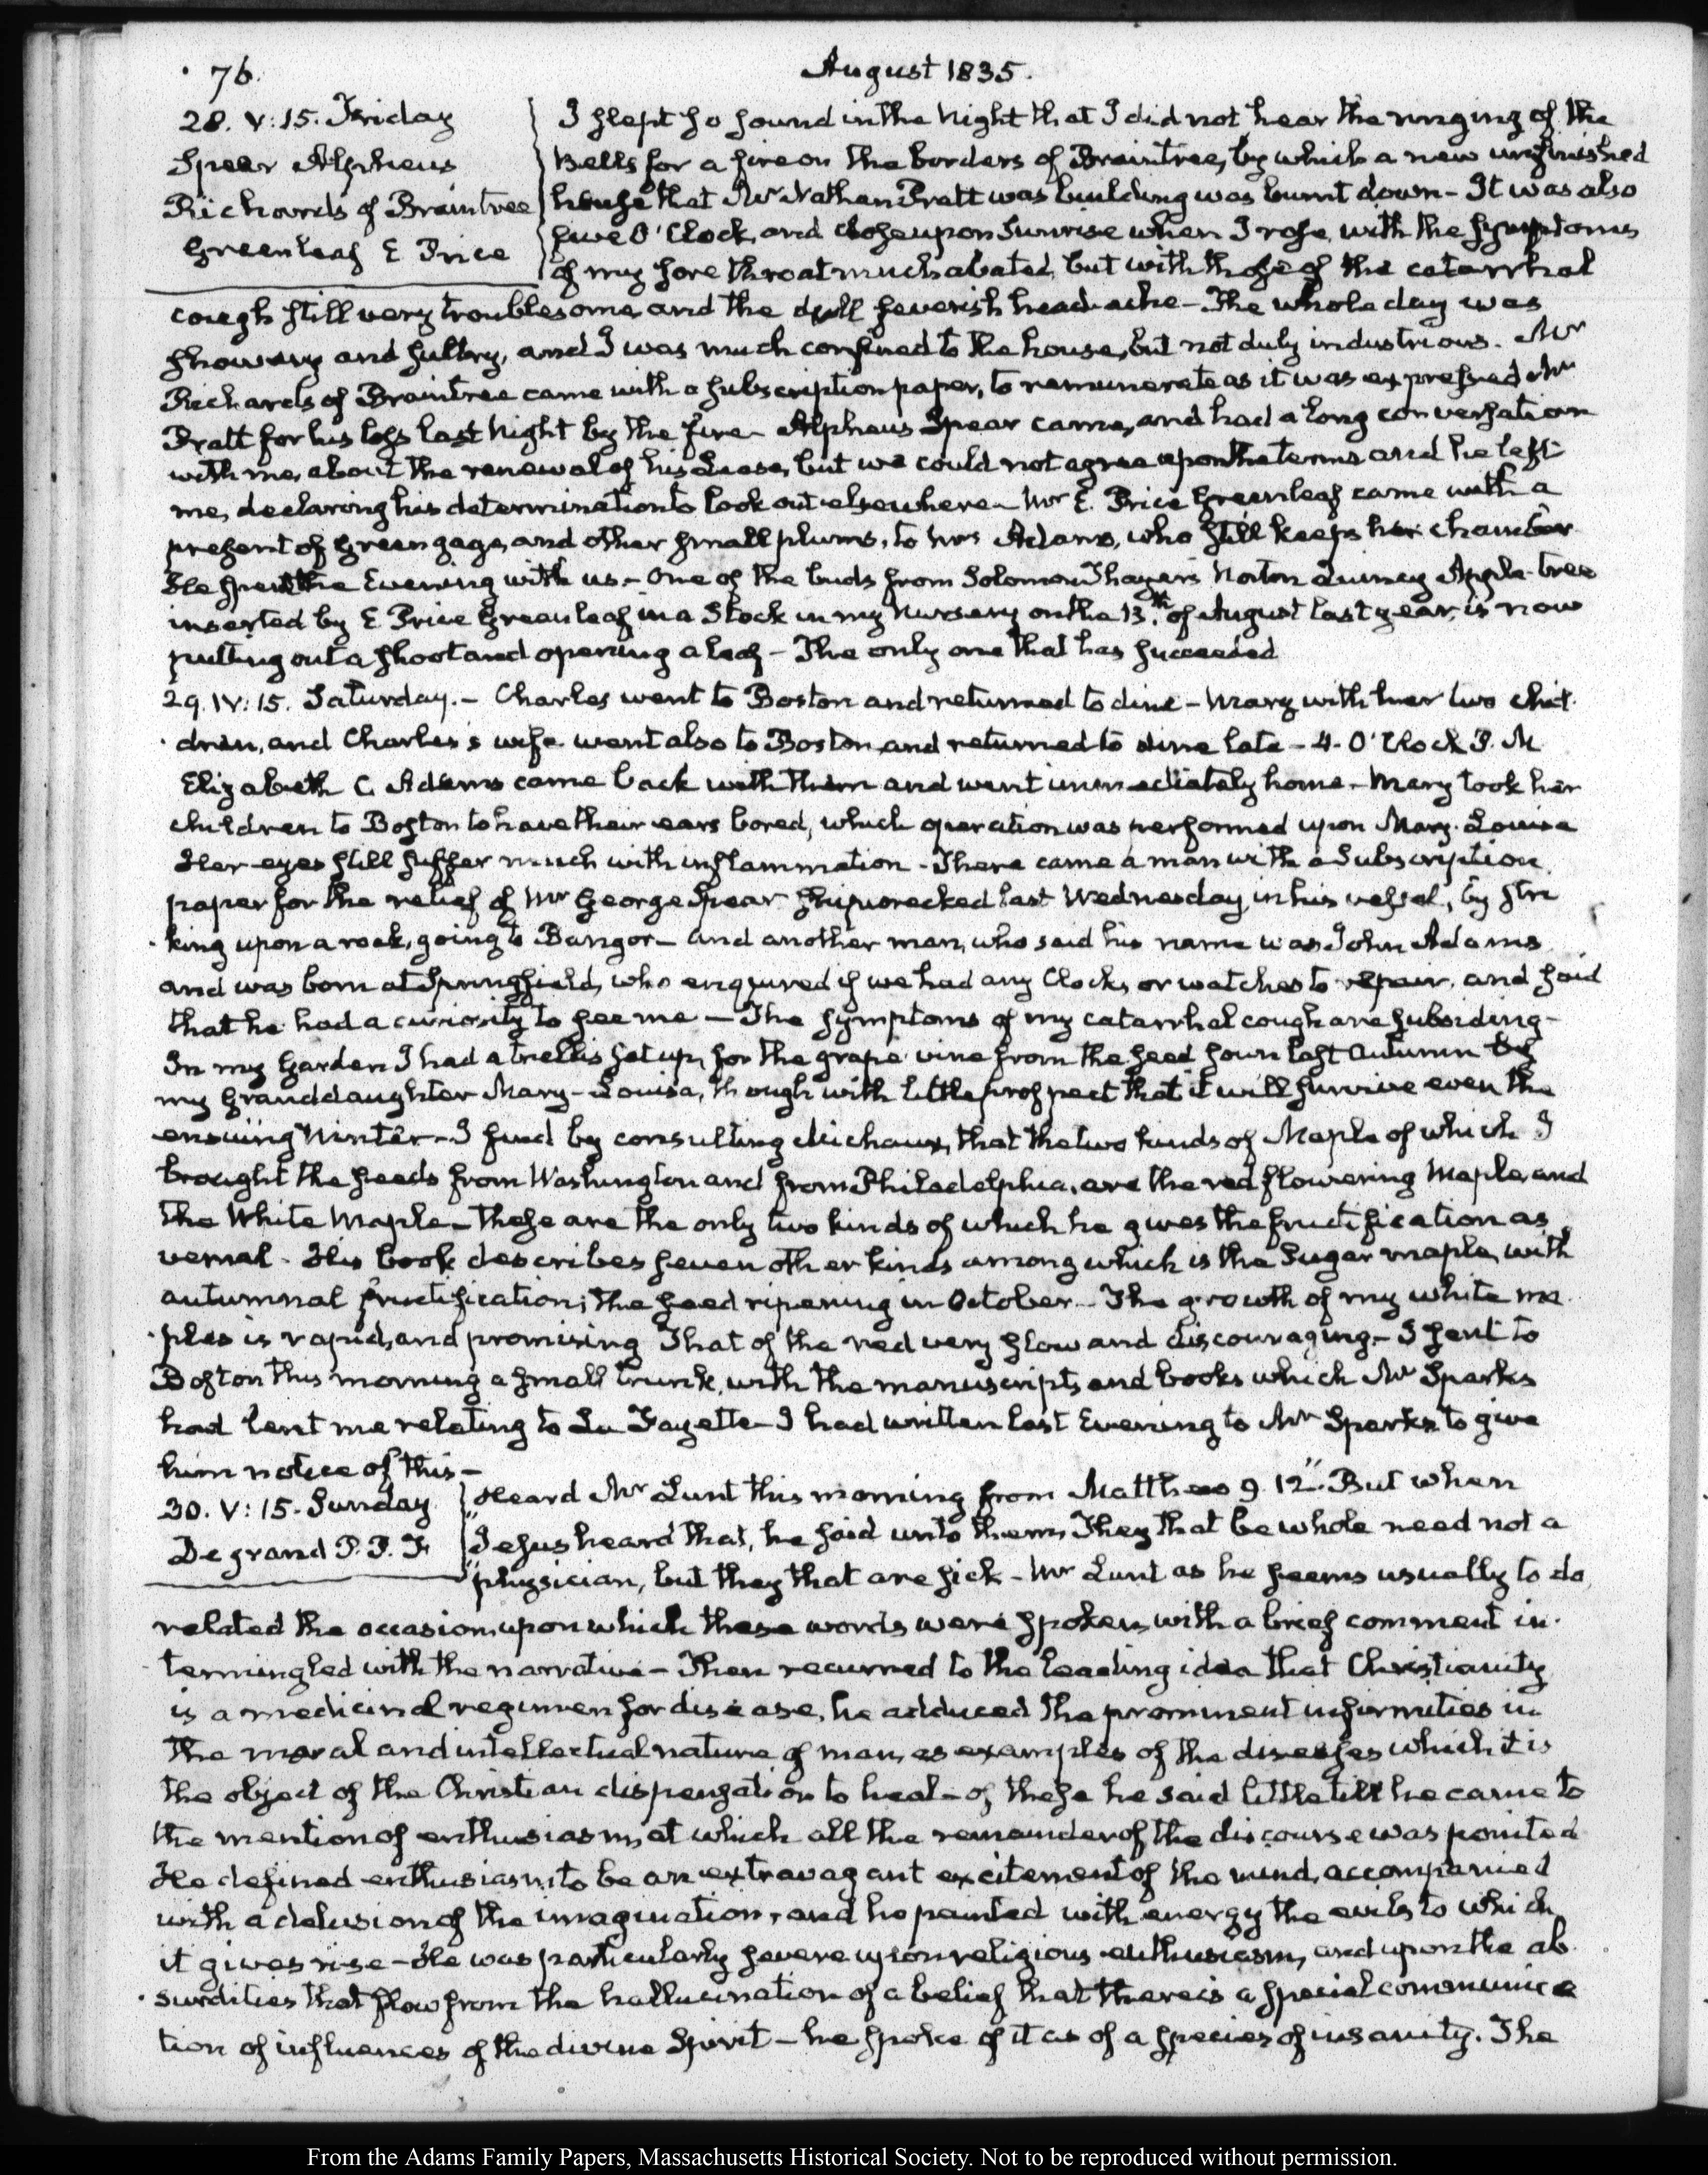 76.
August 1835.
28. V:15. Friday
Spear Alpheus
Richards of Braintree
Greenleaf E Price
I slept so sound in the Night that I did not hear the ringing of the
Bells for a fire on the borders of Braintree, by which a new unfinished
house that Mr Nathan Pratt was building was burnt down - It was also
five O'Clock, and close upon Sunrise when I rose, with the symptoms
of my sore throat much abated, but with those of the catarrhal
cough still very troublesome, and the dull feverish head-ache - The whole day was
showery and sultry, and I was much confined to the house, but not duly industrious. Mr
Richards of Braintree came with a subscription paper, to remunerate as it was expressed Mr
Pratt for his loss last Night by the fire - Alpheus Spear came, and had a long conversation
with me, about the renewal of his Lease, but we could not agree upon the terms and he left
me, declaring his determination to look out elsewhere - Mr E. Price Greenleaf came with a
present of green gage, and other small plums, to Mrs Adams, who still keeps her chamber
He spent the Evening with us - One of the buds from Solomon Thayer's Norton Quincy Apple-tree
inserted by E Price Greenleaf in a Stock in my Nursery on the 13.th of August last year, is now
putting out a shoot and opening a leaf - The only one that has succeeded
29. IV:15. Saturday. - Charles went to Boston and returned to dine - Mary with her two chil-
dren, and Charles's wife went also to Boston and returned to dine late - 4. O'Clock P. M
Elizabeth C. Adams came back with them and went immediately home - Mary took her
children to Boston to have their ears bored, which operation was performed upon Mary-Louisa
Her eyes still suffer much with inflammation - There came a man with a Subscription
paper for the relief of Mr George Spear shipwrecked last Wednesday, in his vessel, by stri
king upon a rock, going to Bangor - and another man, who said his name was John Adams
and was born at Springfield, who enquired if we had any Clocks, or watches to repair, and said
that he had a curiosity to see me - The symptoms of my catarrhal cough are subsiding -
In my Garden I had a trellis set up, for the grape vine from the seed sown last Autumn by
my Granddaughter Mary-Louisa, though with little prospect that it will survive even the
ensuing Winter - I find by consulting Michaux, that the two kinds of Maple of which I
brought the seeds from Washington and from Philadelphia, are the red flowering Maple, and
the White Maple - these are the only two kinds of which he gives the fructification as
vernal - His book describes seven other kinds among which is the Sugar maple, with
autumnal fructification; the seed ripening in October - The growth of my white ma
ples is rapid, and promising That of the red very slow and discouraging - I sent to
Boston this morning a small trunk, with the manuscripts and books which Mr Sparks
had lent me relating to La Fayette - I had written last Evening to Mr Sparks to give
him notice of this -
30. V:15. Sunday
Degrand P. P. F.
Heard Mr Lunt this morning from Matthew 9. 12. "But when
"Jesus heard that, he said unto them, They that be whole need not a
"physician, but they that are sick - Mr Lunt as he seems usually to do,
related the occasion, upon which these words were spoken, with a brief comment in-
termingled with the narrative - Then recurred to the leading idea that Christianity
is a medicinal regimen for disease, he adduced the prominent infirmities in
the moral and intellectual nature of man, as examples of the diseases which it is
the object of the Christian dispensation to heal - of these he said little till he came to
the mention of enthusiasm, at which all the remainder of the discourse was pointed
He defined enthusiasm to be an extravagant excitement of the mind, accompanied
with a delusion of the imagination, and he painted with energy the evils to which
it gives rise - He was particularly severe upon religious enthusiasm, and upon the ab
surdities that flow from the hallucination of a belief that there is a special communica
tion of influences of the divine Spirit - he spoke of it as of a species of insanity. The
From the Adams Family Papers, Massachusetts Historical Society. Not to be reproduced without permission.